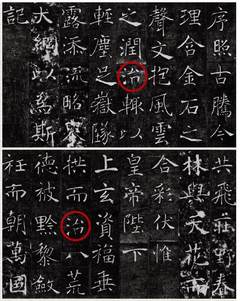 序照古騰今
理含金石之
聲文抱風雲
之潤治輒以
輕塵足嶽墜
露添流略舉
大綱以為斯
記
共飛莊野春
林與天花而
合彩伏惟
皇帝陛下
上玄資福垂
拱而治八荒
德被黔黎斂
衽而朝萬國